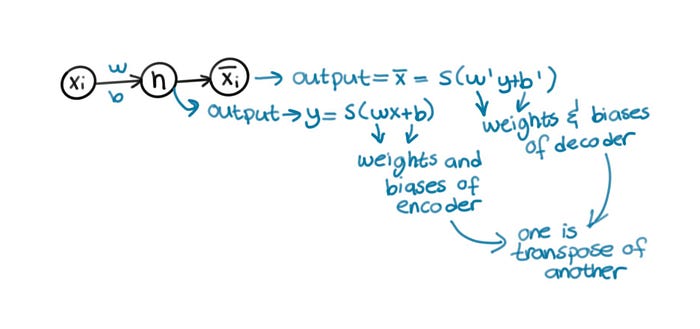 w
xi h x̄i → output = x̄ = s(w'y+b')
b
output → y = s(wx+b)
weights & biases
of decoder
weights and
biases of
encoder
one is
transpose of
another